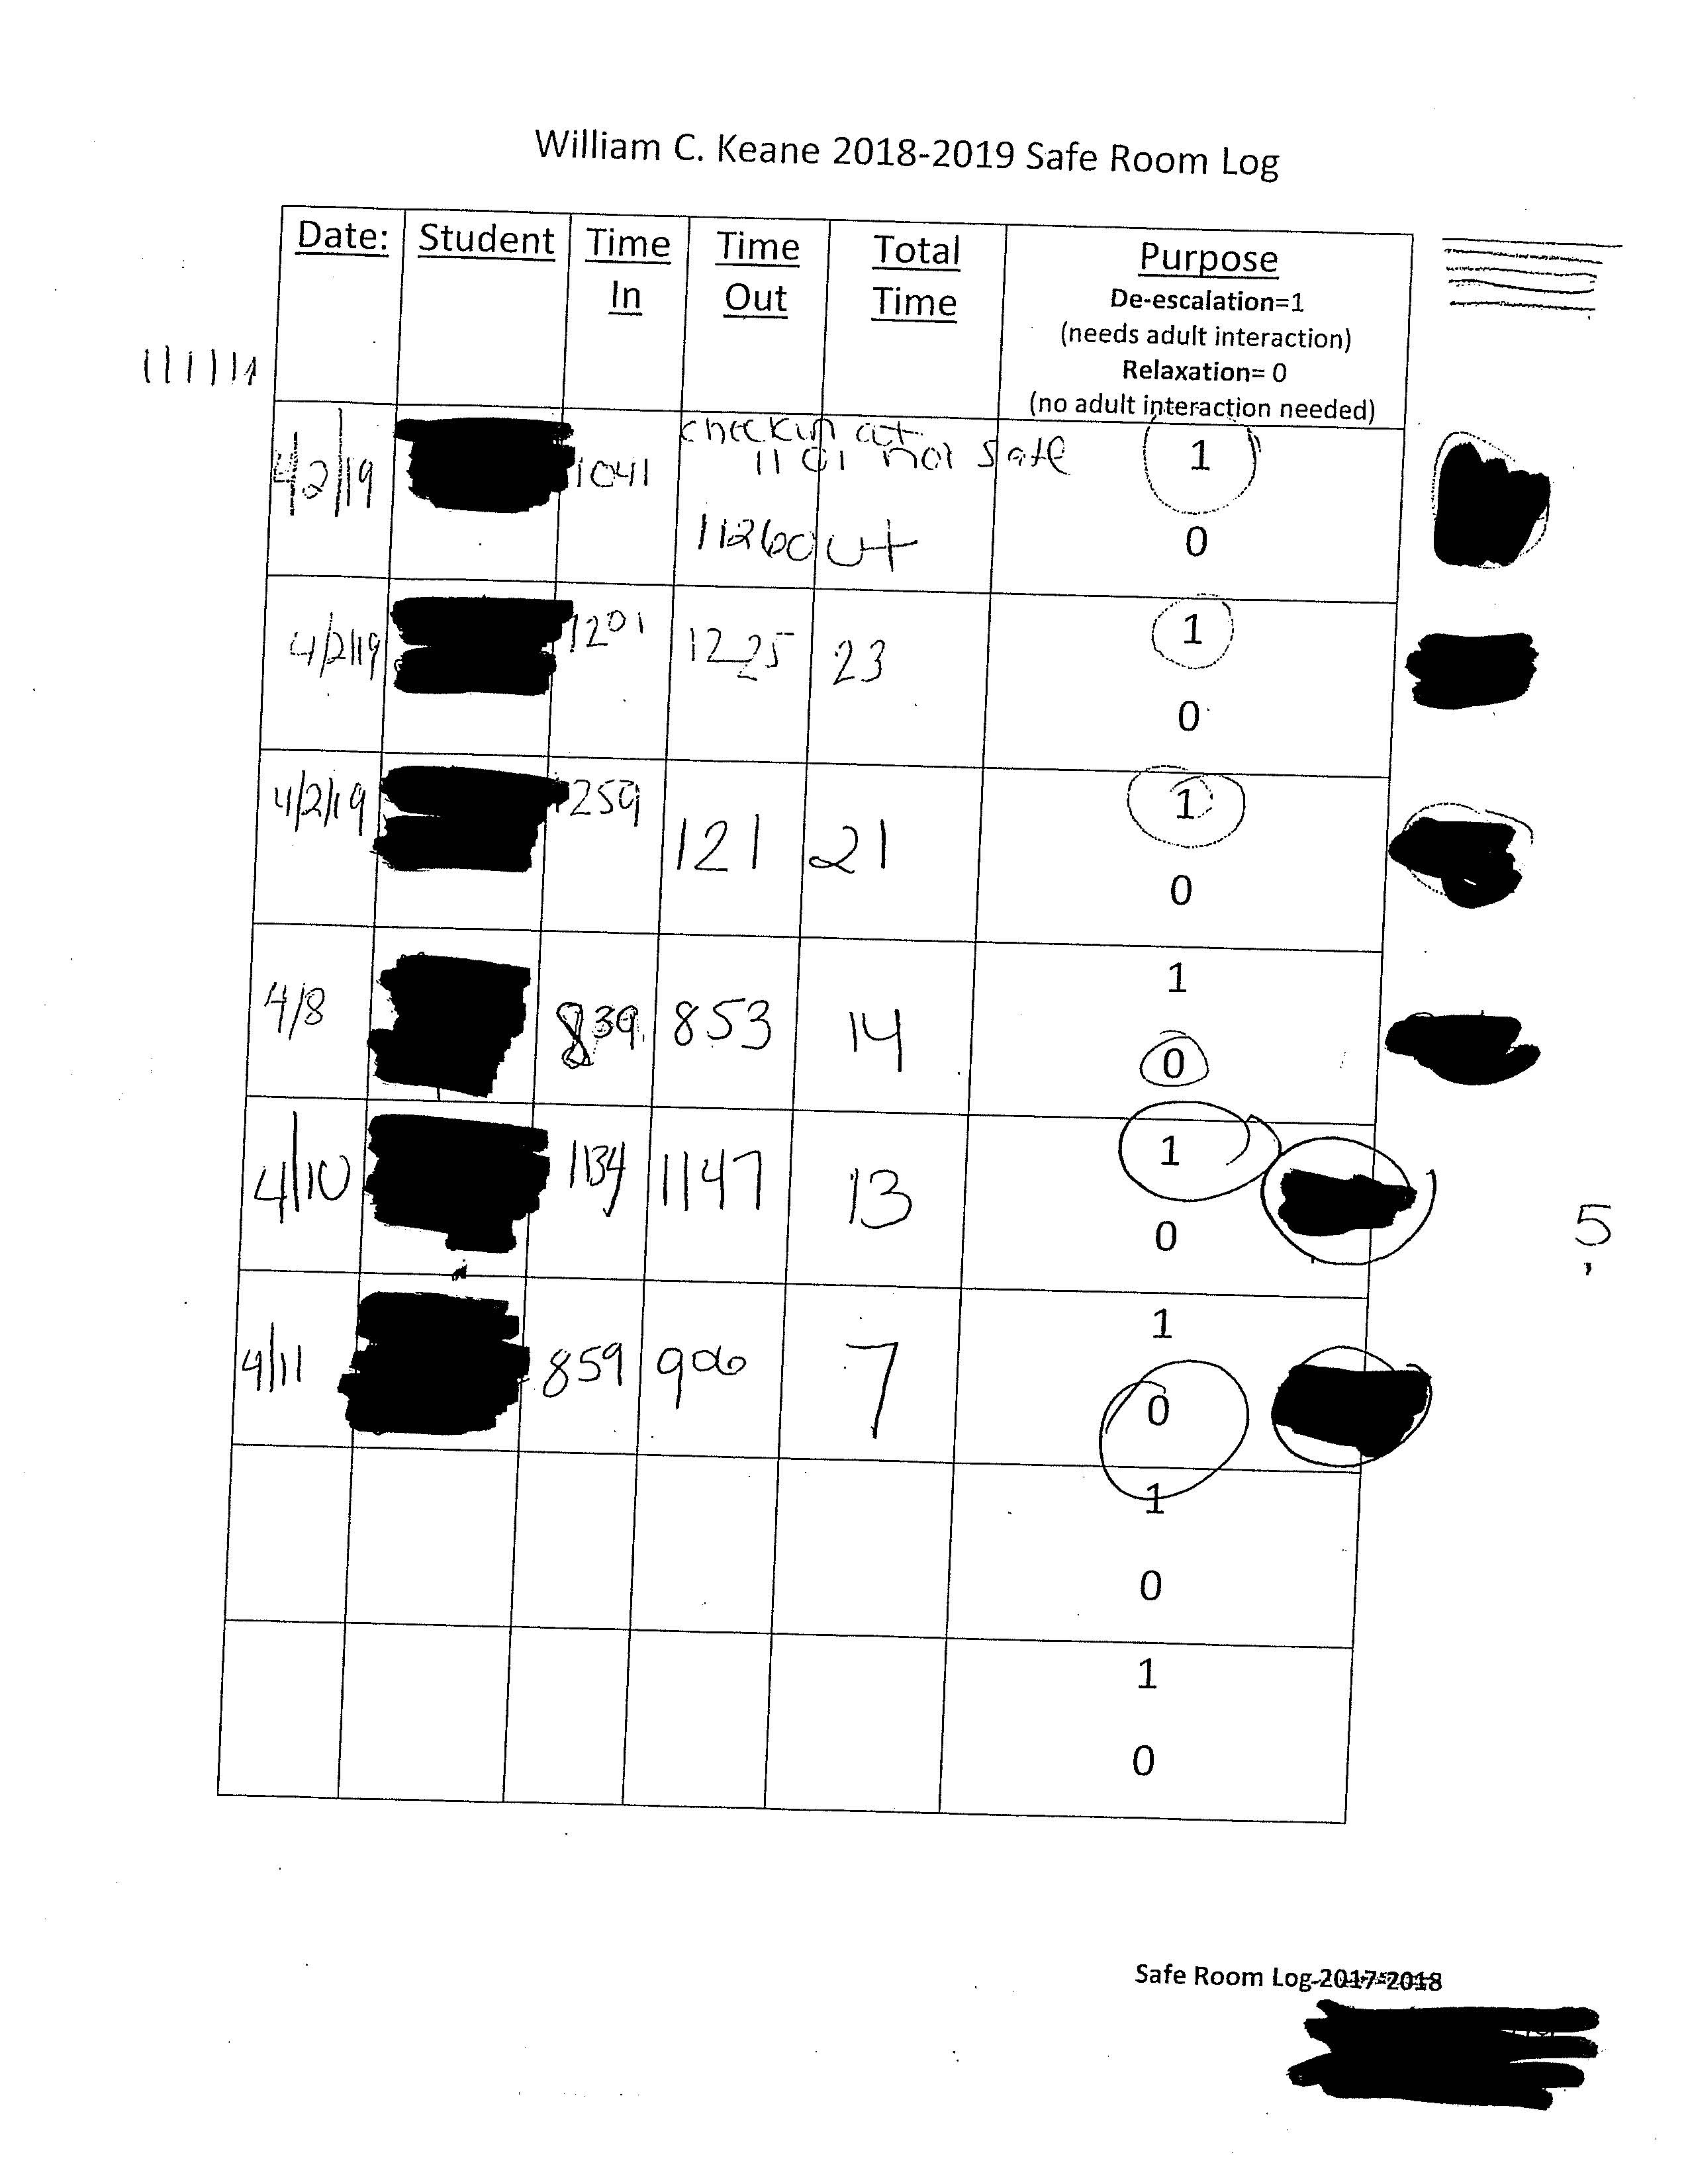 William C. Keane 2018-2019 Safe Room Log
Date: Student Time In Time Out Total Time Purpose
De-escalation=1
(needs adult interaction)
Relaxation= 0
(no adult interaction needed)
4/2/19 1041 checkin at 1101 not safe 1
1126 out 0
4/2/19 1201 1225 23 1
0
4/2/19 1259 121 21 1
0
4/8 839 853 14 1
0
4/10 1134 1147 13 1
0
5
4/11 859 906 7 1
0
1
0
1
0
Safe Room Log 2017-2018